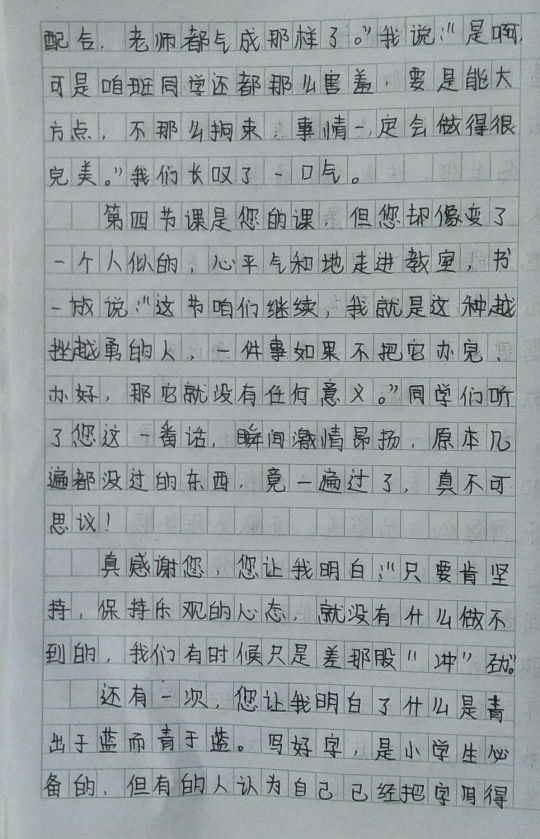 配合，老师都气成那样了。”我说：“是啊，
可是咱班同学还都那么害羞，要是能大
方点，不那么拘束，事情一定会做得很
完美。”我们长叹了一口气。
第四节课是您的课，但您却像变了
一个人似的，心平气和地走进教室，书
一放说：“这节咱们继续，我就是这种越
挫越勇的人，一件事如果不把它办完、
办好，那它就没有任何意义。”同学们听
了您这一番话，瞬间激情昂扬，原本几
遍都没过的东西，竟一遍过了，真不可
思议！
真感谢您，您让我明白：“只要肯坚
持，保持乐观的心态，就没有什么做不
到的，我们有时候只是差那股“冲”劲。”
还有一次，您让我明白了什么是青
出于蓝而青于蓝。写好字，是小学生必
备的，但有的人认为自己已经把字写得